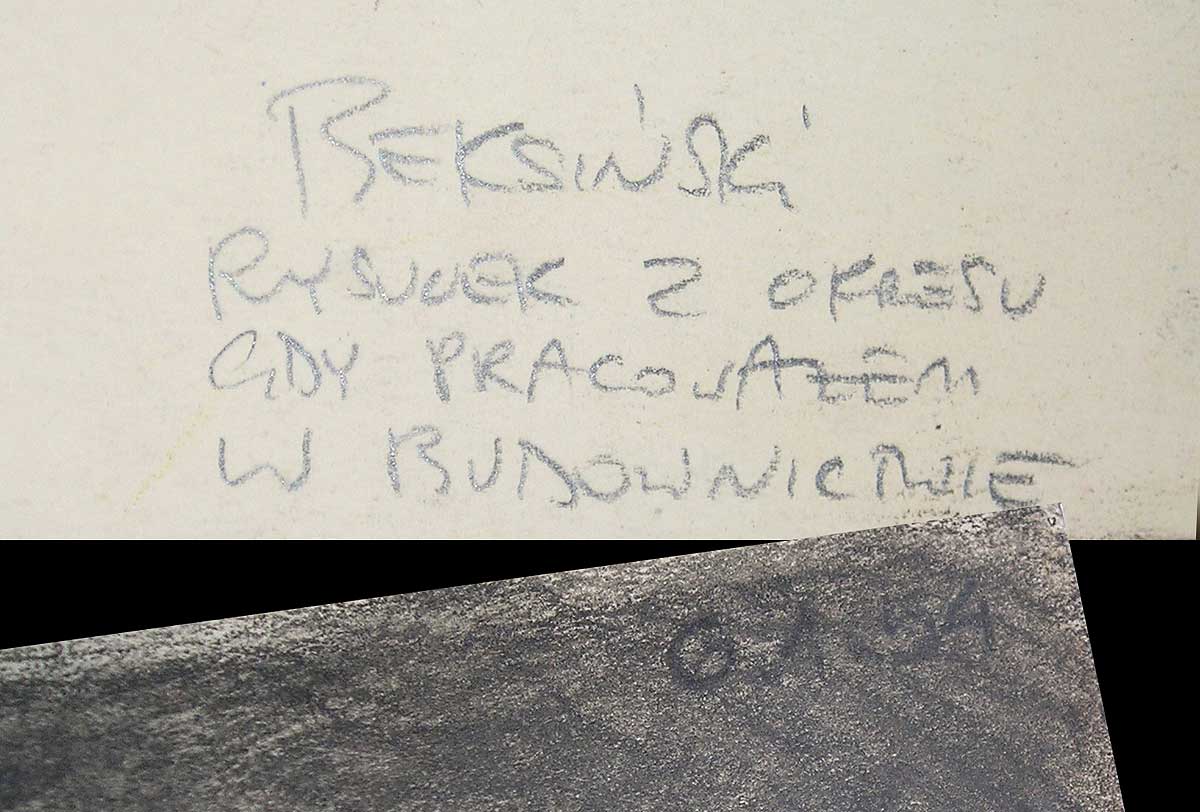 BEKSIŃSKI
RYSUNEK Z OKRESU
GDY PRACOWAŁEM
W BUDOWNICTWIE